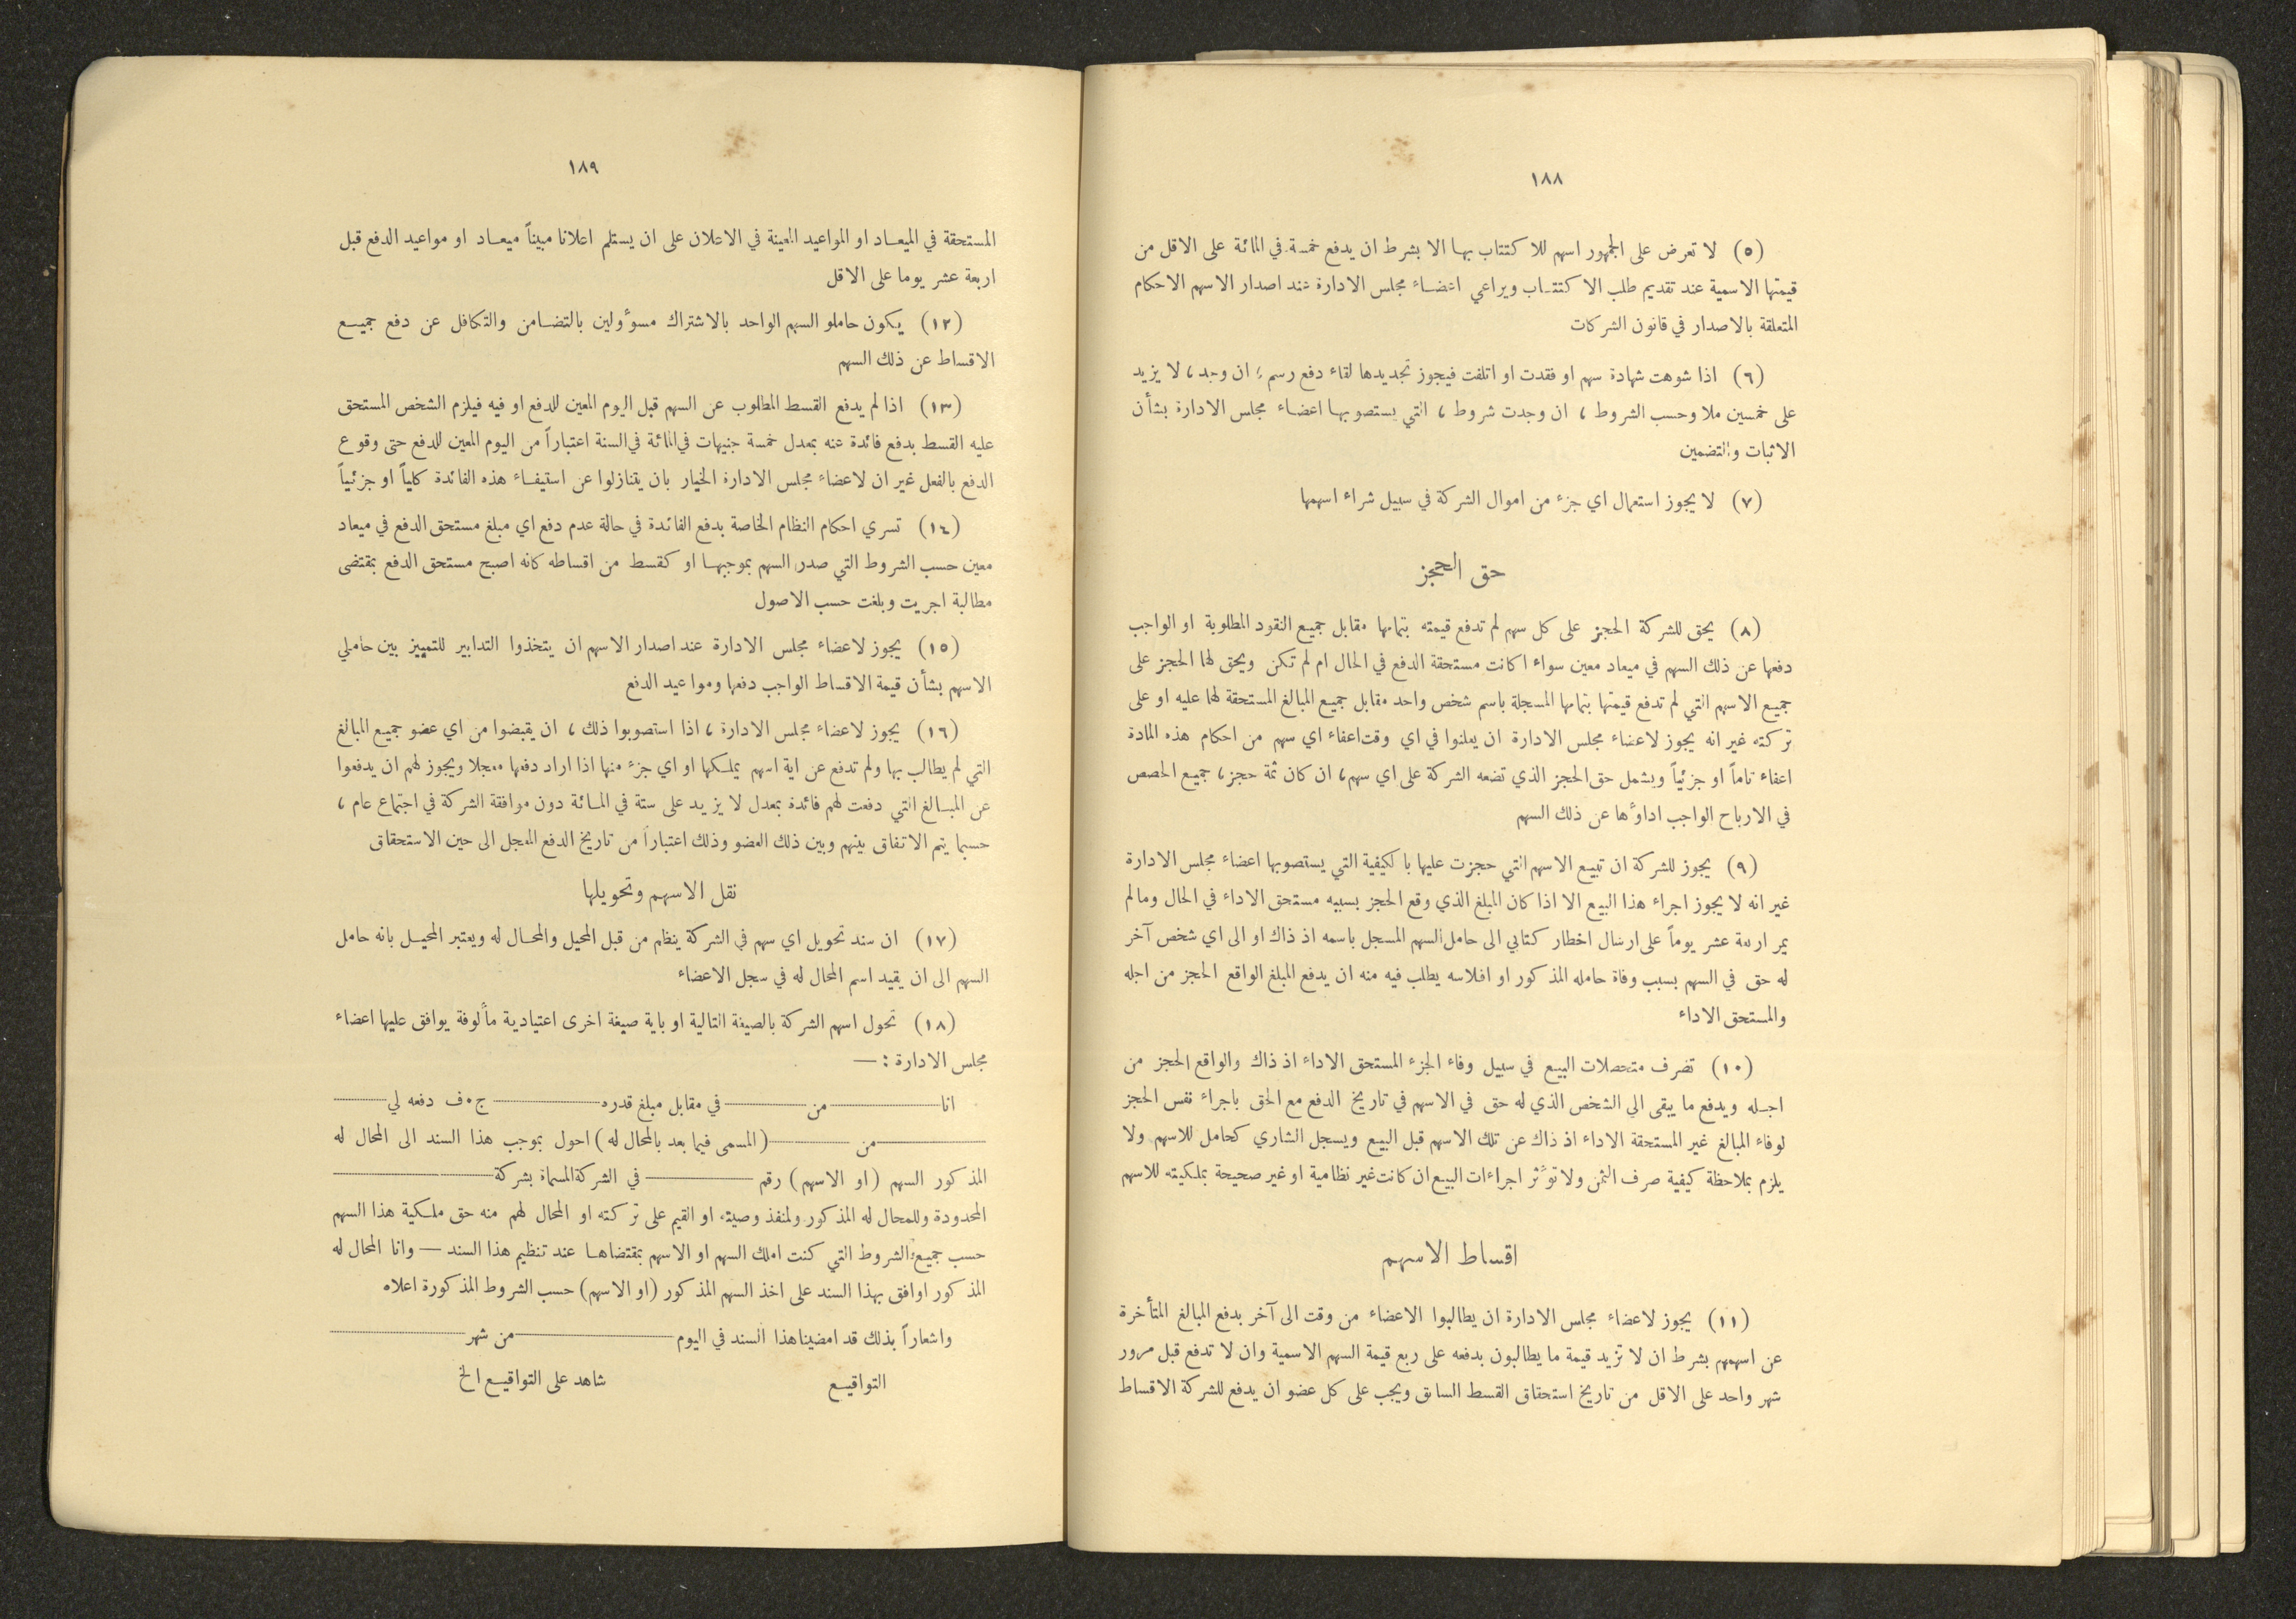 ١٨٨
(٥) لا تعرض على الجمهور اسهم للاكتتاب بها الا بشرط ان يدفع خمسة في المائة على الاقل من
قيمتها الاسمية عند تقديم طلب الاكتتاب ويراعي اعضاء مجلس الادارة عند اصدار الاسهم الاحكام
المتعلقة بالاصدار في قانون الشركات
(٦) اذا شوهت شهادة سهم او فقدت او اتلفت فيجوز تجديدها لقاء دفع رسم ، ان وجد ، لا يزيد
على خمسين ملا وحسب الشروط ، ان وجدت شروط ، التي يستصوبها اعضاء مجلس الادارة بشأن
الاثبات والتضمين
(٧) لا يجوز استعمال اي جزء من اموال الشركة في سبيل شراء اسهمها
حق الحجز
(٨) يحق للشركة الحجز على كل سهم لم تدفع قيمته بتمامها مقابل جميع النقود المطلوبة او الواجب
دفعها عن ذلك السهم في ميعاد معين سواء اكانت مستحقة الدفع في الحال ام لم تكن ويحق لها الحجز على
جميع الاسهم التي لم تدفع قيمتها بتمامها المسجلة باسم شخص واحد مقابل جميع المبالغ المستحقة لها عليه او على
تركته غير انه يجوز لاعضاء مجلس الادارة ان يعلنوا في اي وقت اعفاء اي سهم من احكام هذه المادة
اعفاء تاماً او جزئياً ويشمل حق الحجز الذي تضعه الشركة على اي سهم ، ان كان ثمة حجز ، جميع الحصص
في الارباح الواجب اداؤها عن ذلك السهم
(٩) يجوز للشركة ان تبيع الاسهم التي حجزت عليها بالكيفية التي يستصوبها اعضاء مجلس الادارة
غير انه لا يجوز اجراء هذا البيع الا اذا كان المبلغ الذي وقع الحجز بسببه مستحق الاداء في الحال وما لم
يمر اربعة عشر يوماً على ارسال اخطار كتابي الى حامل السهم المسجل باسمه اذ ذاك او الى اي شخص آخر
له حق في السهم بسبب وفاة حامله المذكور او افلاسه يطلب فيه منه ان يدفع المبلغ الواقع الحجز من اجله
والمستحق الاداء
(١٠) تصرف متحصلات البيع في سبيل وفاء الجزء المستحق الاداء اذ ذاك والواقع الحجز من
اجله ويدفع ما يبقى الي الشخص الذي له حق في الاسهم في تاريخ الدفع مع الحق باجراء نفس الحجز
لوفاء المبالغ غير المستحقة الاداء اذ ذاك عن تلك الاسهم قبل البيع ويسجل الشاري كحامل للاسهم ولا
يلزم بملاحظة كيفية صرف الثمن ولا تؤثر اجراءات البيع ان كانت غير نظامية او غير صحيحة بملكيته للاسهم
اقساط الاسهم
(١١) يجوز لاعضاء مجلس الادارة ان يطالبوا الاعضاء من وقت الى آخر بدفع المبالغ المتأخرة
عن اسهمهم بشرط ان لا تزيد قيمة ما يطالبون بدفعه على ربع قيمة السهم الاسمية وان لا تدفع قبل مرور
شهر واحد على الاقل من تاريخ استحقاق القسط السابق ويجب على كل عضو ان يدفع للشركة الاقساط
١٨٩
المستحقة في الميعاد او المواعيد المعينة في الاعلان على ان يستلم اعلانا مبيناً ميعاد او مواعيد الدفع قبل
اربعة عشر يوما على الاقل
(١٢) يكون حاملو السهم الواحد بالاشتراك مسؤولين بالتضامن والتكافل عن دفع جميع
الاقساط عن ذلك السهم
(١٣) اذا لم يدفع القسط المطلوب عن السهم قبل اليوم المعين للدفع او فيه فيلزم الشخص المستحق
عليه القسط بدفع فائدة عنه بمعدل خمسة جنيهات في المائة في السنة اعتباراً من اليوم المعين للدفع حتى وقوع
الدفع بالفعل غير ان لاعضاء مجلس الادارة الخيار بان يتنازلوا عن استيفاء هذه الفائدة كلياً او جزئياً
(١٤) تسري احكام النظام الخاصة بدفع الفائدة في حالة عدم دفع اي مبلغ مستحق الدفع في ميعاد
معين حسب الشروط التي صدر السهم بموجبها او كقسط من اقساطه كانه اصبح مستحق الدفع بمقتضى
مطالبة اجريت وبلغت حسب الاصول
(١٥) يجوز لاعضاء مجلس الادارة عند اصدار الاسهم ان يتخذوا التدابير للتمييز بين حاملي
الاسهم بشأن قيمة الاقساط الواجب دفعها ومواعيد الدفع
(١٦) يجوز لاعضاء مجلس الادارة ، اذا استصوبوا ذلك ، ان يقبضوا من اي عضو جميع المبالغ
التي لم يطالب بها ولم تدفع عن اية اسهم يملكها او اي جزء منها اذا اراد دفعها معجلا ويجوز لهم ان يدفعوا
عن المبالغ التي دفعت لهم فائدة بمعدل لا يزيد على ستة في المائة دون موافقة الشركة في اجتماع عام ،
حسبما يتم الاتفاق بينهم وبين ذلك العضو وذلك اعتباراً من تاريخ الدفع المعجل الى حين الاستحقاق
نقل الاسهم وتحويلها
(١٧) ان سند تحويل اي سهم في الشركة ينظم من قبل المحيل والمحال له ويعتبر المحيل بانه حامل
السهم الى ان يقيد اسم المحال له في سجل الاعضاء
(١٨) تحول اسهم الشركة بالصيغة التالية او باية صيغة اخرى اعتيادية مألوفة يوافق عليها اعضاء
مجلس الادارة : —
انا ........ من ........ في مقابل مبلغ قدره ........ ج٠ف دفعه لي ........
........ من ........ (المسمى فيما بعد بالمحال له) احول بموجب هذا السند الى المحال له
المذكور السهم (او الاسهم) رقم ........ في الشركة المسماة بشركة ........
المحدودة وللمحال له المذكور ولمنفذ وصيته او القيم على تركته او المحال لهم منه حق ملكية هذا السهم
حسب جميع الشروط التي كنت املك السهم او الاسهم بمقتضاها عند تنظيم هذا السند — وانا المحال له
المذكور اوافق بهذا السند على اخذ السهم المذكور (او الاسهم) حسب الشروط المذكورة اعلاه
واشعاراً بذلك قد امضينا هذا السند في اليوم ........ من شهر ........
التواقيع شاهد على التواقيع الخ